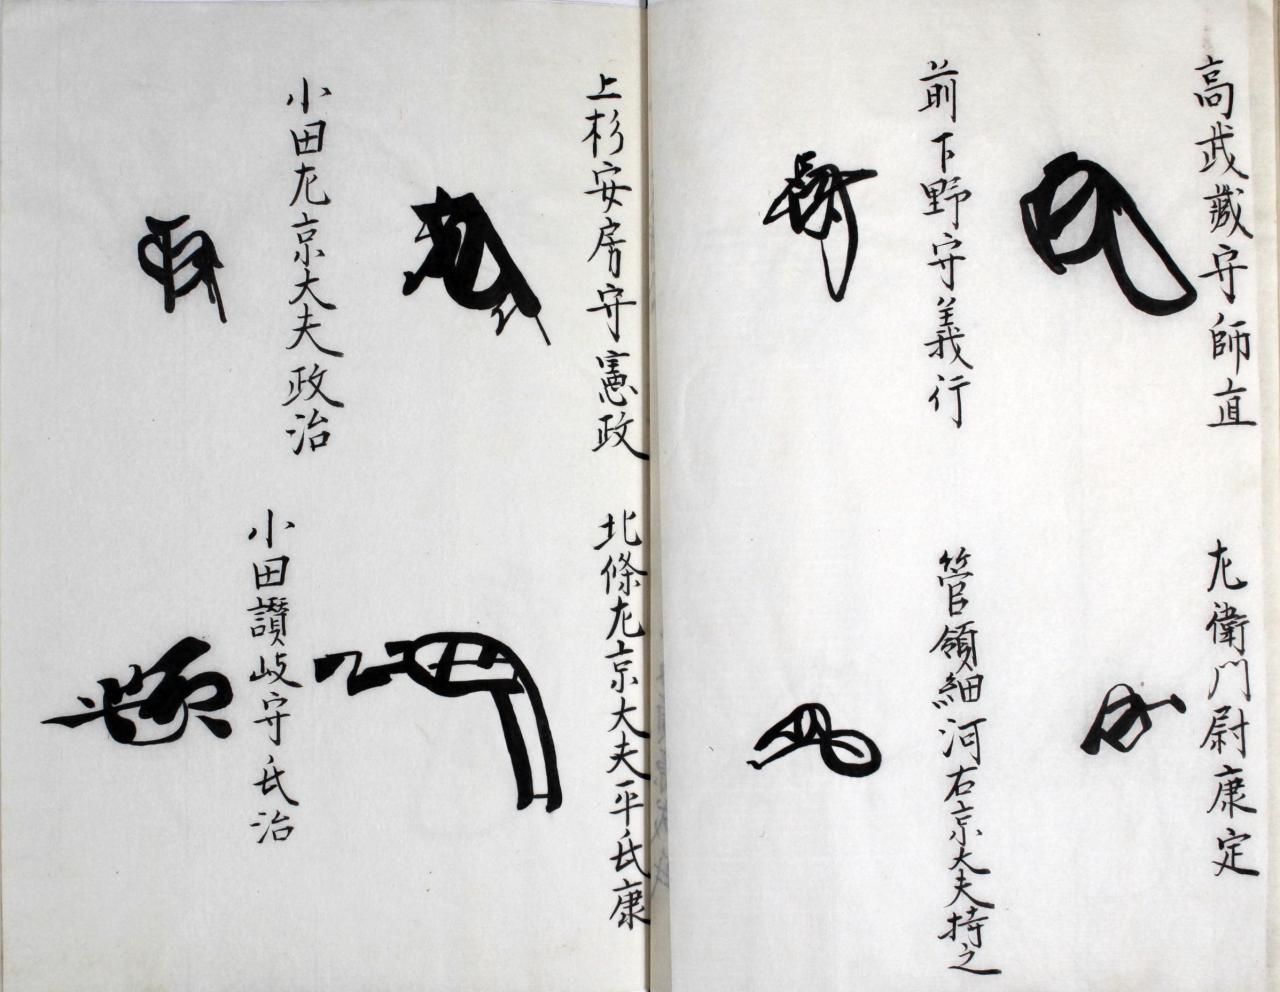 高武藏守師直
左衛門尉康定
前下野守義行
管領細河右京大夫持之
上杉安房守憲政
北條左京大夫平氏康
小田左京大夫政治
小田讃岐守氏治